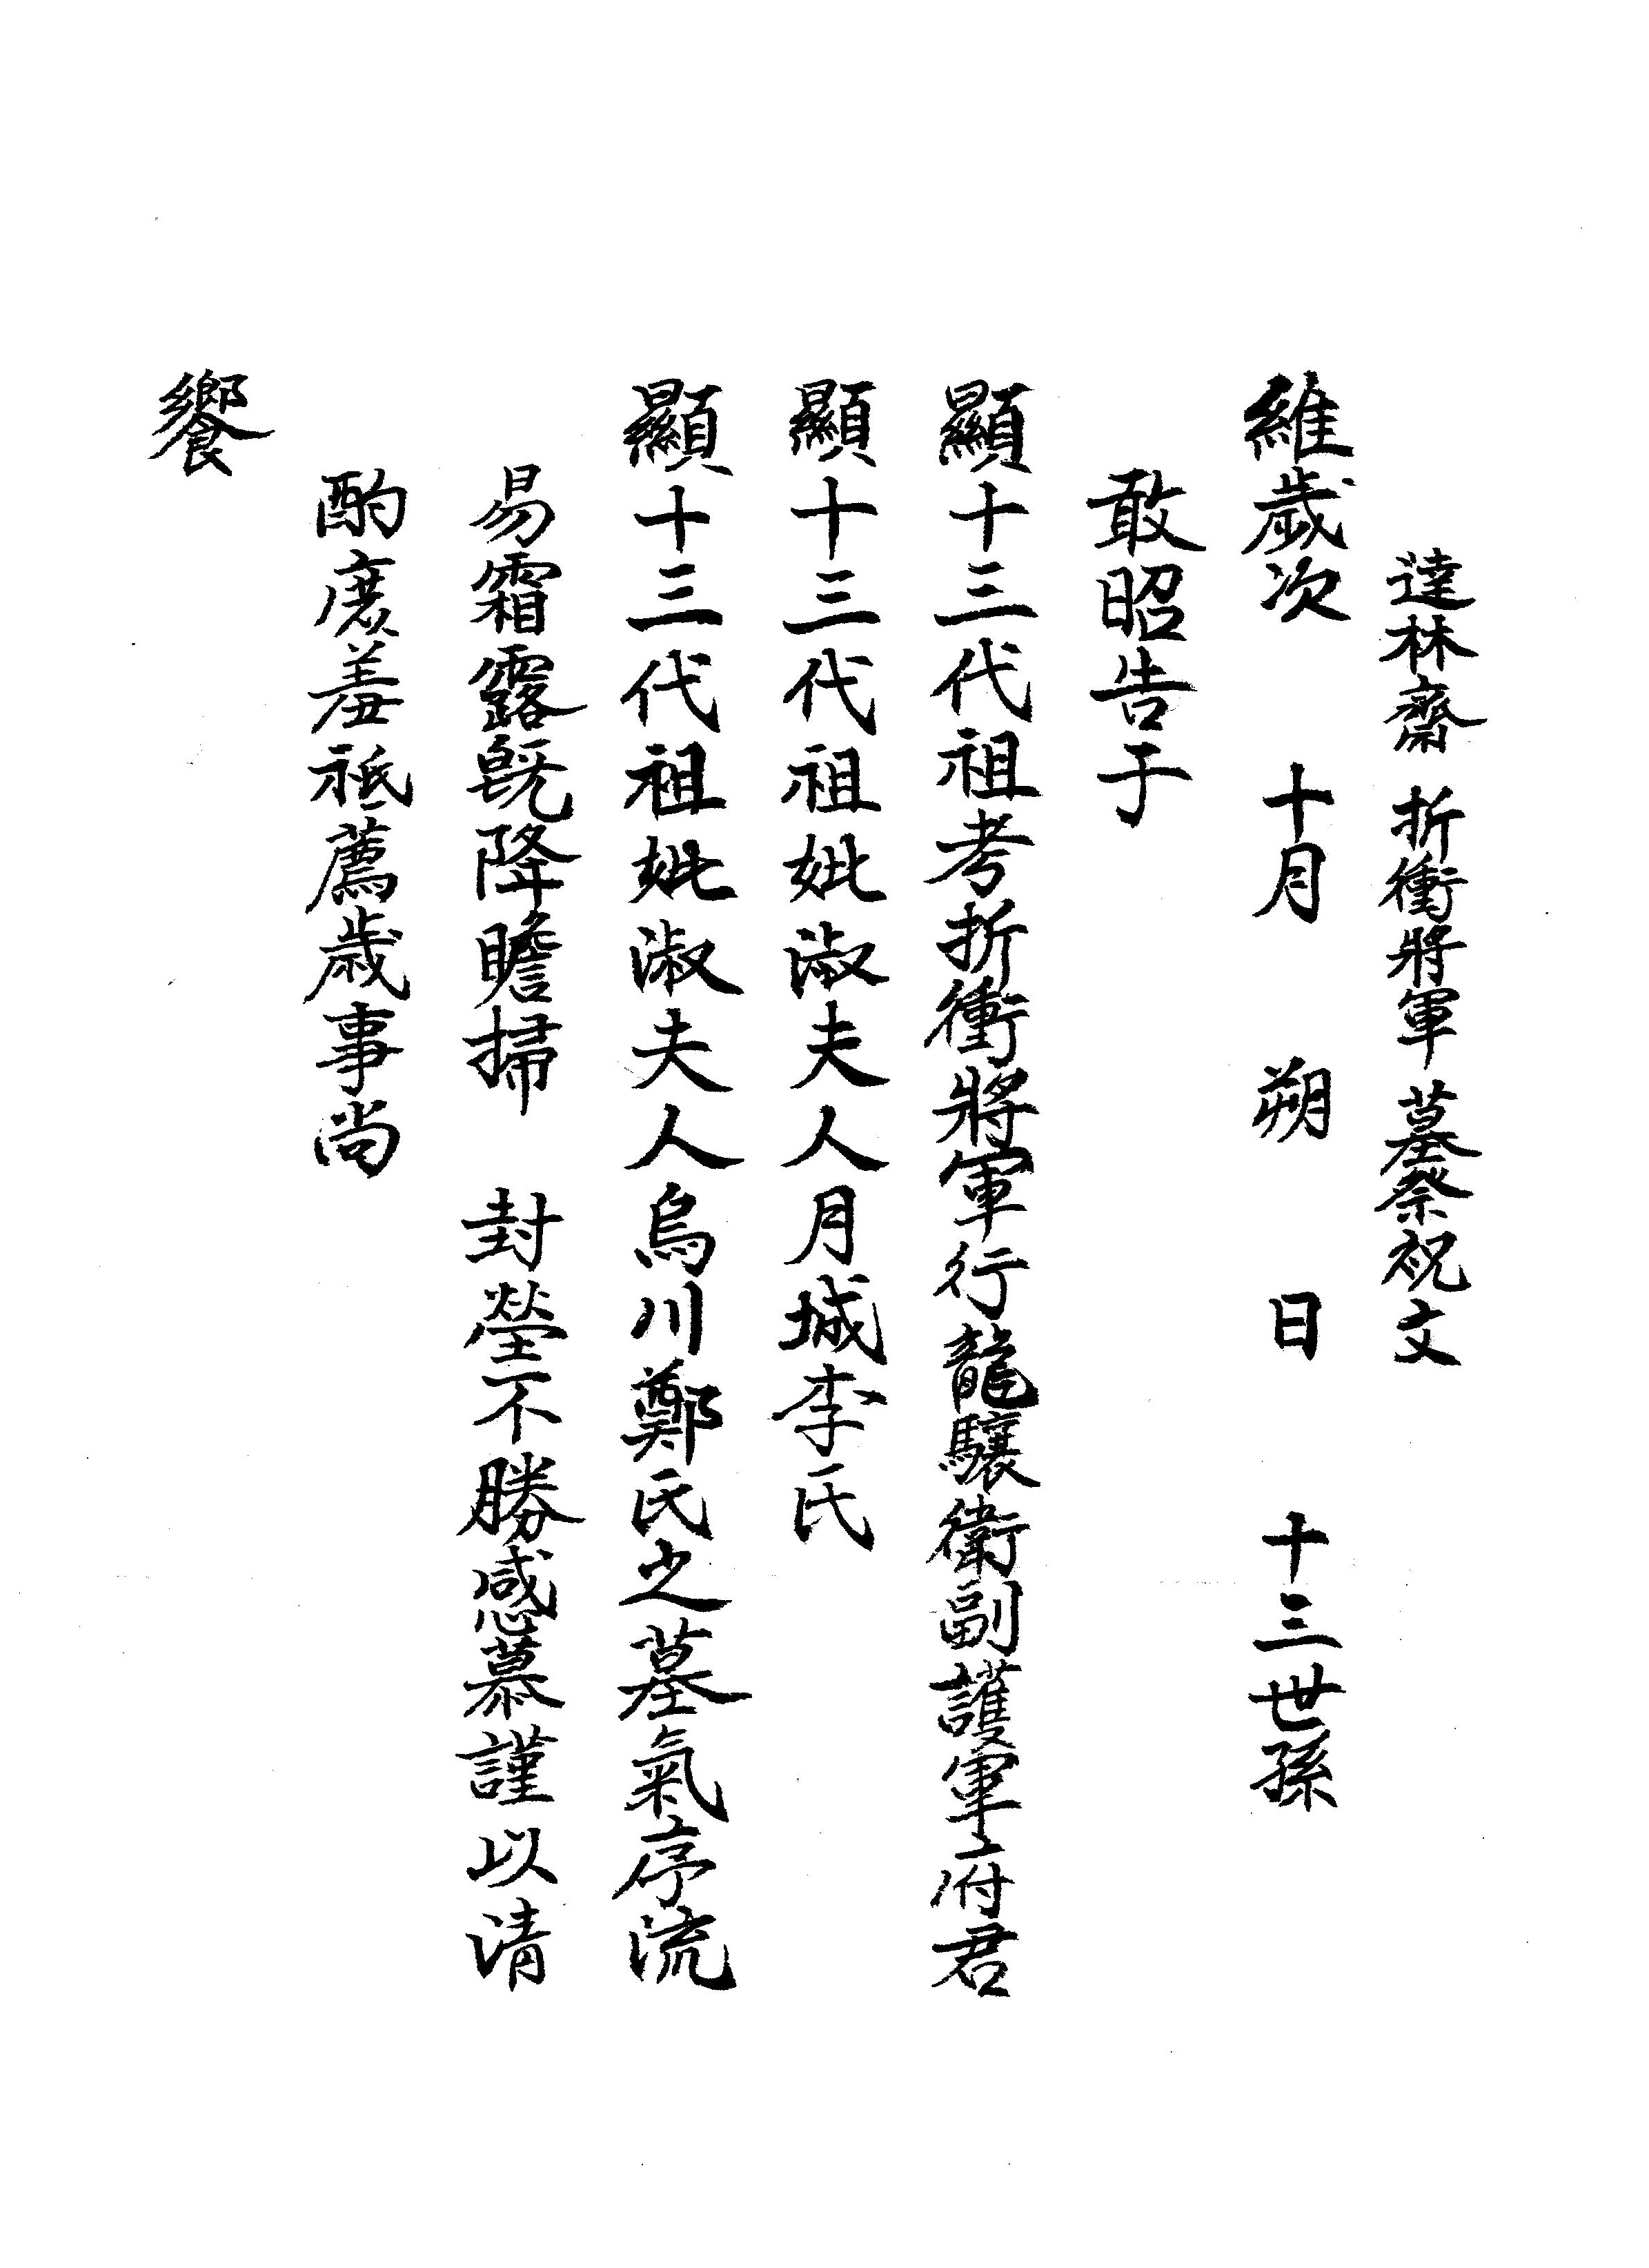 達林齋 折衝將軍 墓祭祝文
維歲次 十月 朔 日 十三世孫
敢昭告于
顯十三代祖考折衝將軍行龍驤衛副護軍府君
顯十三代祖妣淑夫人月城李氏
顯十三代祖妣淑夫人烏川鄭氏之墓氣序流
易霜露旣降瞻掃 封塋不勝感慕謹以清
酌庶羞祗薦歲事尚
饗